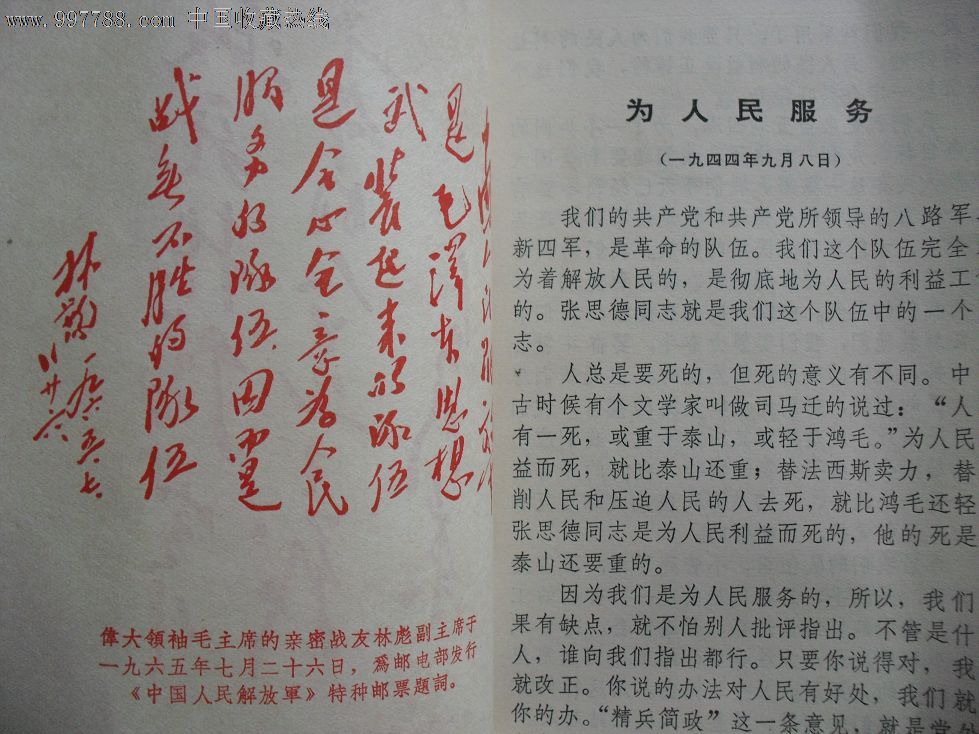 www.997788.com 中国收藏热线
是毛澤东思想
武装起来的队伍
是全心全意为人民
服务的隊伍因而是
战無不胜的隊伍
林彪 一九六五、七、
廿六
偉大領袖毛主席的亲密战友林彪副主席于
一九六五年七月二十六日，爲邮电部发行
《中国人民解放軍》特种邮票題詞。
为人民服务
（一九四四年九月八日）
我们的共产党和共产党所领导的八路军
新四军，是革命的队伍。我们这个队伍完全
为着解放人民的，是彻底地为人民的利益工
的。张思德同志就是我们这个队伍中的一个
志。
人总是要死的，但死的意义有不同。中
古时候有个文学家叫做司马迁的说过：“人
有一死，或重于泰山，或轻于鸿毛。”为人民
益而死，就比泰山还重；替法西斯卖力，替
削人民和压迫人民的人去死，就比鸿毛还轻
张思德同志是为人民利益而死的，他的死是
泰山还要重的。
因为我们是为人民服务的，所以，我们
果有缺点，就不怕别人批评指出。不管是什
人，谁向我们指出都行。只要你说得对，我
就改正。你说的办法对人民有好处，我们就
你的办。“精兵简政”这一条意见，就是党外